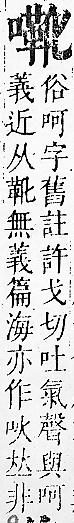 俗呵字舊註許戈切吐氣聲與呵
義近从靴無義篇海亦作吙非